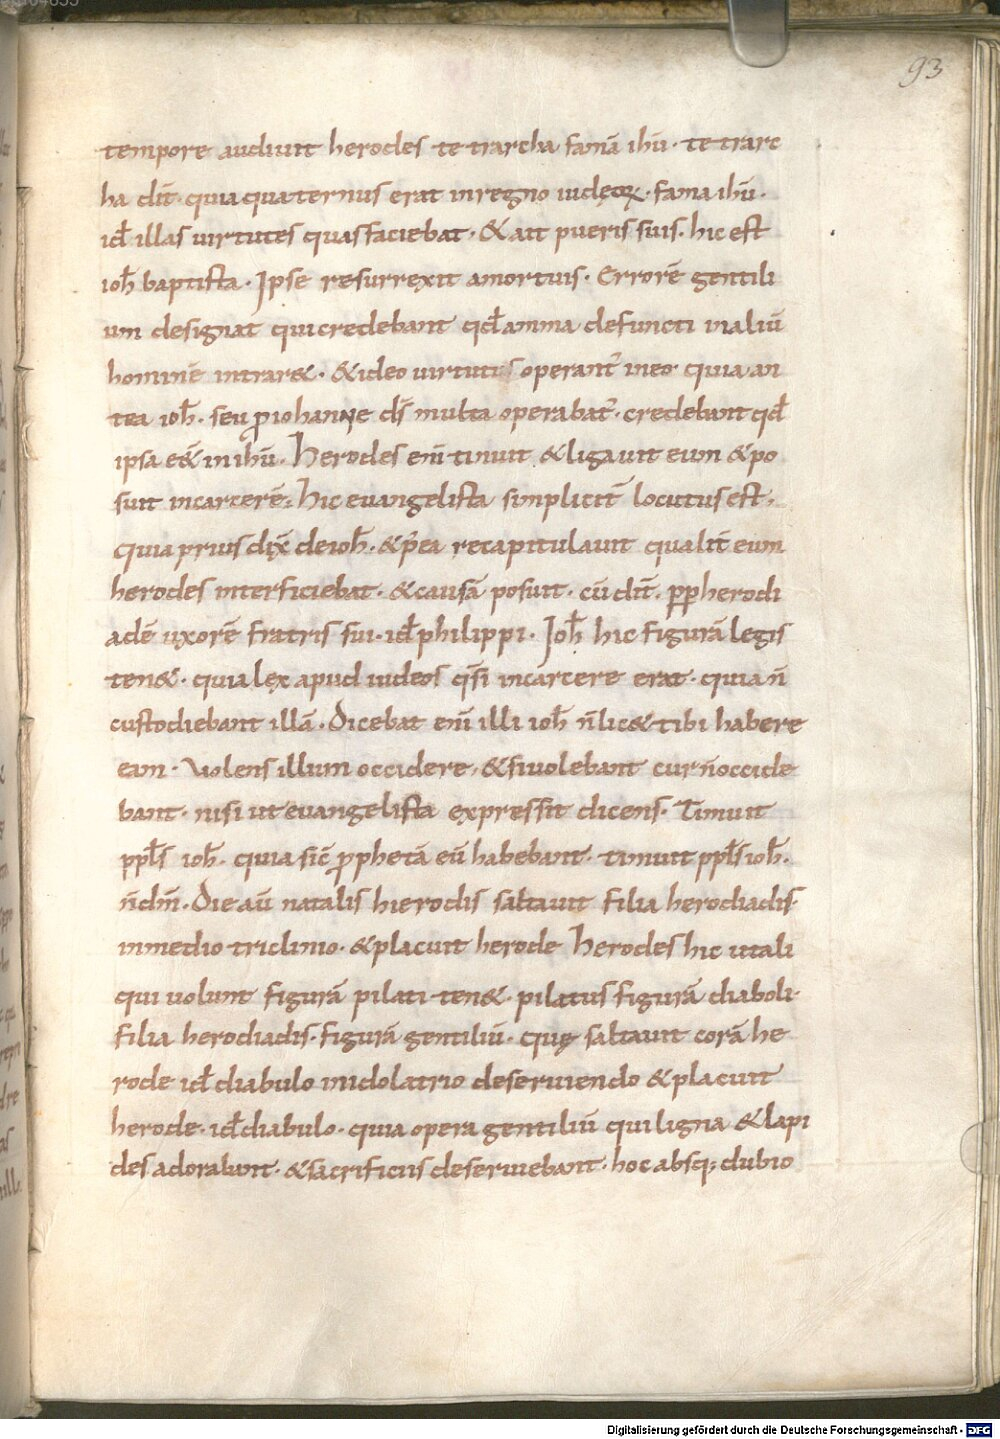 93
tempore audiuit herodes te trarcha famā ihū · te trarc
ha diī · quia quaternus erat in regno iudęoꝝ · fama ihū ·
id̄ illas uirtutes quas faciebat · & ait pueris suis · hic est
ioh̄ baptista · Ipse resurrexit a mortuis · Errorē gentili
um designat qui credebant qd̄ anima defuncti in aliū
hominē intrar& · & ideo uirtutes operant̄ in eo quia an
tea ioh̄ · seu ꝓ iohanne ds̄ multa operabat̄ · credebant qd̄
ipsa eēt in ihū · Herodes enī tinuit & ligauit eum & po
suit in carcerē · Hic euangelista simplicit̄ locutus est ·
quia prius dix̄ de ioh̄ · & p̄ea recapitulauit qualit̄ eum
herodes interficiebat · & causā posuit · cū dix̄ · ꝓꝑ herodi
adē uxorē fratris sui · id̄ philippi · Ioh̄ hic figurā legis
ten& · quia lex apud iudeos qs̄i in carcere erat · quia n̄
custodiebant illā · Dicebat enī illi ioh̄ n̄ lic& tibi habere
eam · Uolens illum occidere, & si uolebant cur n̄ occide
bant · nisi ut euangelista expressit dicens · Timuit
ppl̄s ioh̄ · quia sic̄ ꝓphetā eū habebant · timuit ppl̄s ioh̄ ·
n̄ dm̄ · Die aū natalis hierodis saltauit filia herodiadis ·
in medio triclinio · & placuit herode Herodes hic ut ali
qui uolunt figurā pilati ten& · pilatus figurā diaboli ·
filia herodiadis · figurā gentiliū · quę saltauit corā he
rode id̄ diabulo in idolatrio deseruiendo & placuit
herode · id̄ diabulo · quia opera gentiliū qui ligna & lapi
des adorabant · & sacrificiis deseruiebant · hoc absq; dubio
Digitalisierung gefördert durch die Deutsche Forschungsgemeinschaft - DFG